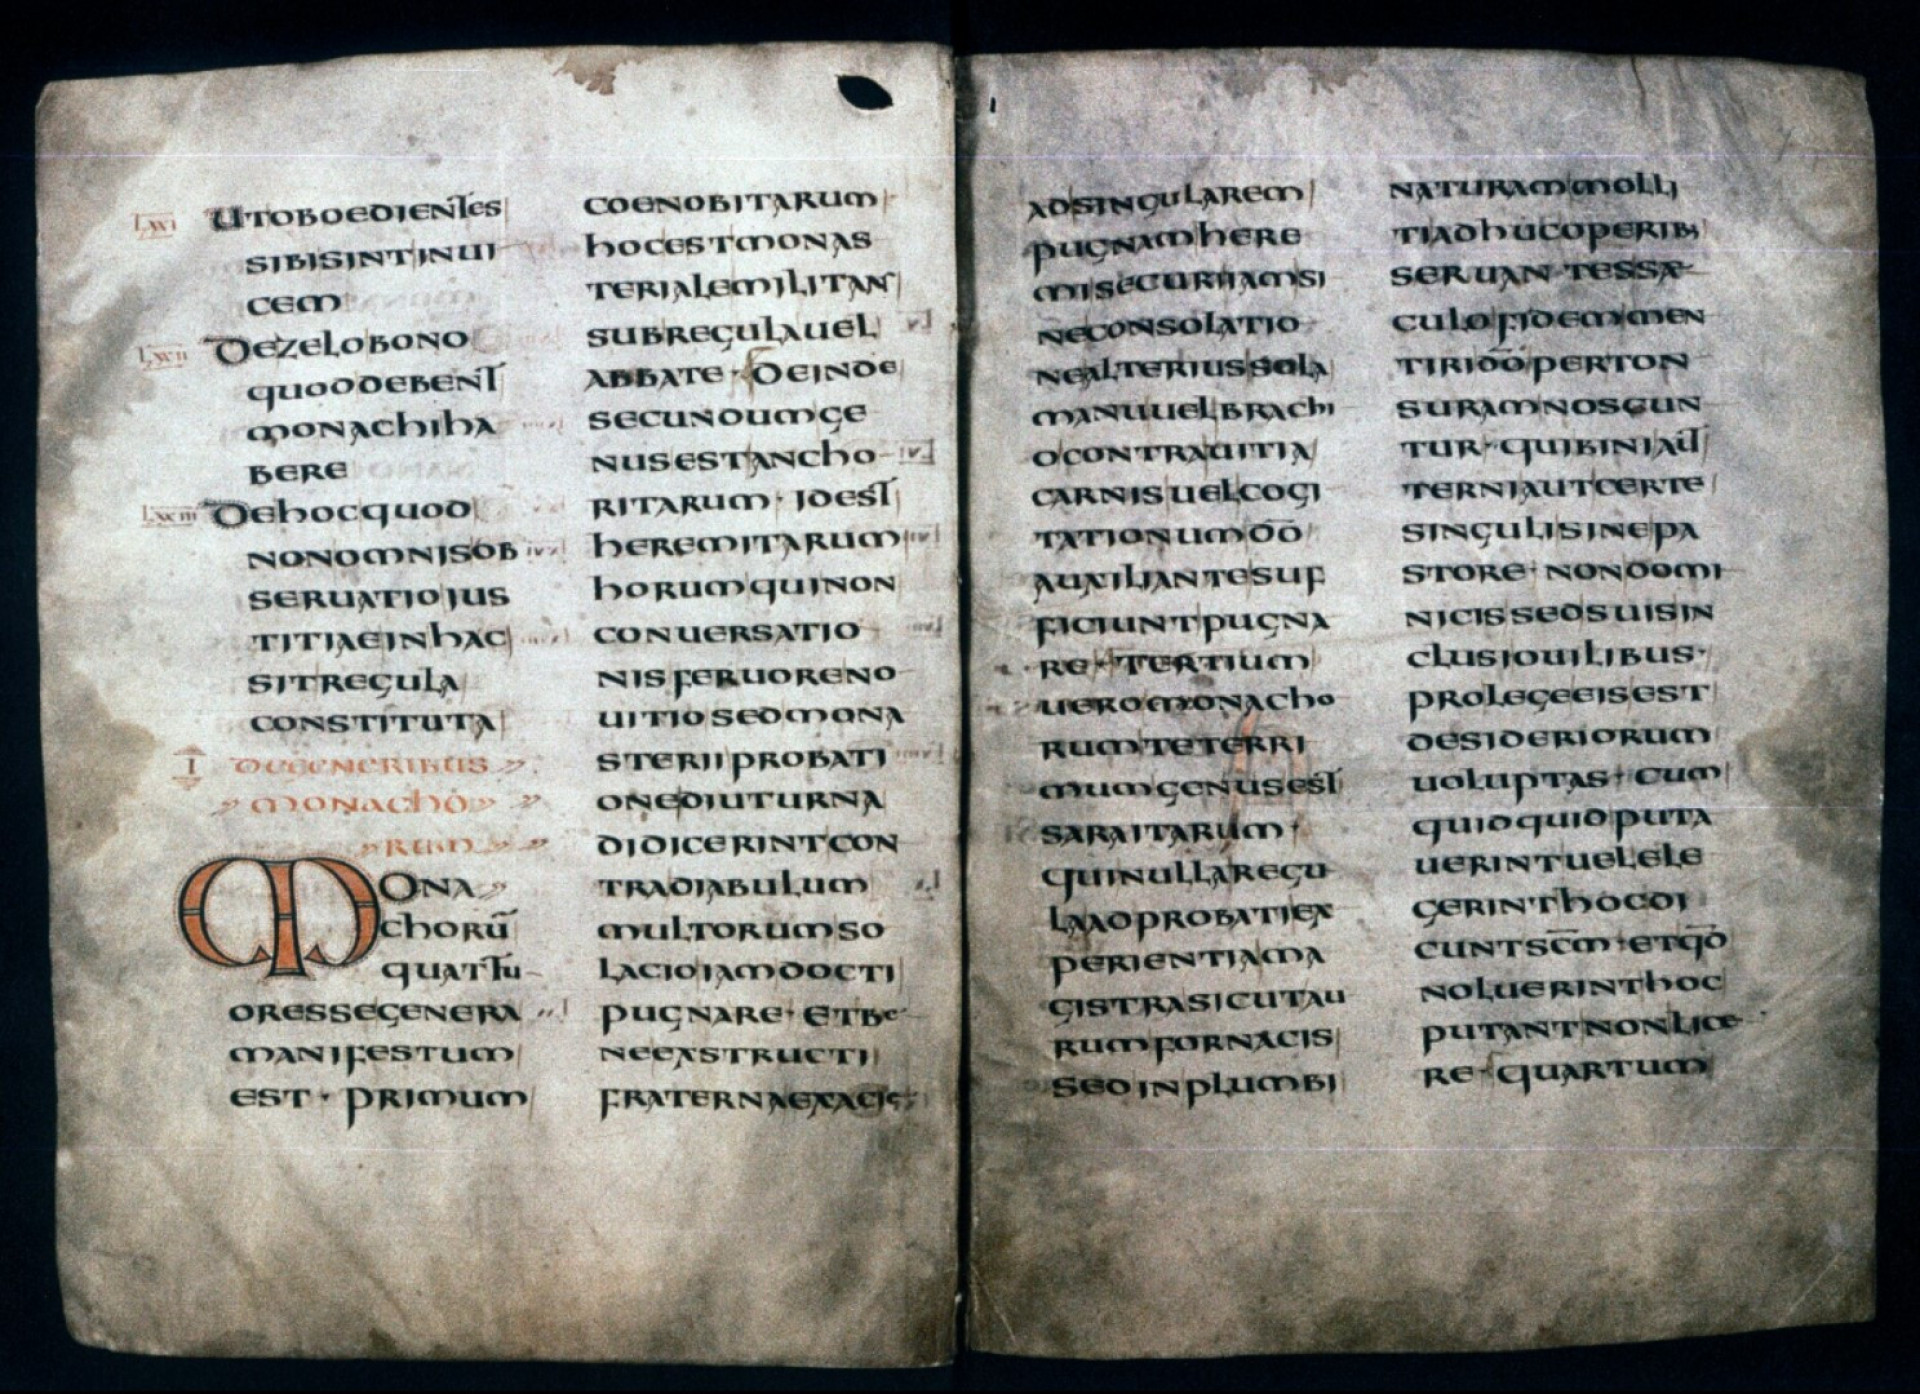 LXXI UTOBOEDIENTES
SIBISINTINUI
CEM
LXXII DEZELOBONO
QUODDEBENT
MONACHIHA
BERE
LXXIII DEHOCQUOD
NONOMNISOB
SERUATIOIUS
TITIAEINHAC
SITREGULA
CONSTITUTA
I DEGENERIBUS
MONACHO
RUM
MONA
CHORŪ
QUATTU
ORESSEGENERA
MANIFESTUM
EST · PRIMUM
COENOBITARUM·
HOCESTMONAS
TERIALEMILITANS
SUBREGULAUEL
ABBATE · DEINDE
SECUNDUMGE
NUSESTANCHO
RITARUM · IDEST
HEREMITARUM
HORUMQUINON
CONUERSATIO
NISFERUORENO
UITIOSEDMONA
STERIIPROBATI
ONEDIUTURNA
DIDICERINTCON
TRADIABULUM
MULTORUMSO
LACIOIAMDOCTI
PUGNARE · ETBE
NEEXSTRUCTI
FRATERNAEXACIE
ADSINGULAREM
PUGNAMHERE
MISECURIIAMSI
NECONSOLATIO
NEALTERIUSSOLA
MANUUELBRACHI
OCONTRAUITIA
CARNISUELCOGI
TATIONUMDŌ
AUXILIANTESUF
FICIUNTPUGNA
RE · TERTIUM
UEROMONACHO
RUMTETERRI
MUMGENUSEST
SARAITARUM ·
QUINULLAREGU
LAADPROBATIEX
PERIENTIAMA
GISTRASICUTAU
RUMFORNACIS
SEDINPLUMBI
NATURAMMOLLI
TIADHUCOPERIB;
SERUANTESSAE
CULOFIDEMMEN
TIRIDŌPERTON
SURAMNOSCUN
TUR · QUIBINIAUT
TERNIAUTCERTE
SINGULISINEPA
STORE · NONDOMI
NICISSEDSUISIN
CLUSIOUILIBUS·
PROLEGEEISEST
DESIDERIORUM
UOLUPTAS · CUM
QUIDQUIDPUTA
UERINTUELELE
GERINTHOCDI
CUNTSC̄M · ETQD̄
NOLUERINTHOC
PUTANTNONLICE
RE · QUARTUM